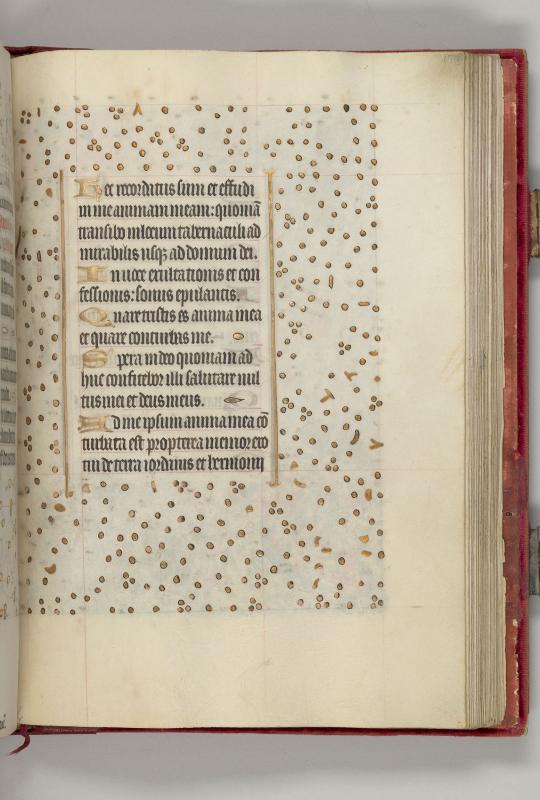 Hec recordatus sum et effudi
in me animam meam: quoniā
transibo in locum tabernaculi ad
mirabilis usqꝫ ad domum dei.
In uoce exultationis et con
fessionis: sonus epulantis.
Quare tristis es anima mea
et quare conturbas me.
Spera in deo quoniam ad
huc confitebor illi salutare uul
tus mei et deus meus.
Ad me ipsum anima mea cō
turbata est propterea memor ero
tui de terra iordanis et hermonij